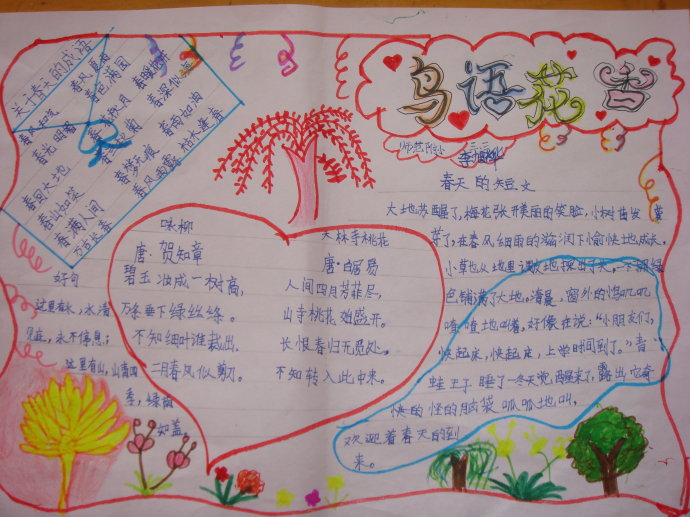 鸟语花香
关于春天的成语
春风夏雨
春色满园
春暖花开
春风和煦
春光明媚
春深似海
春雨如油
春回大地
春山如笑
春满人间
万古长春
春风雨露
枯木逢春
咏柳
唐·贺知章
碧玉妆成一树高,
万条垂下绿丝绦。
不知细叶谁裁出,
二月春风似剪刀。
大林寺桃花
唐·白居易
人间四月芳菲尽,
山寺桃花始盛开。
长恨春归无觅处,
不知转入此中来。
好句
这里有水,水清
见底,永不停息;
这里有山,山青四
季,绿树
如盖。
师范附小
春天的短文
大地苏醒了,梅花张开美丽的笑脸,小树苗发
芽了,在春风细雨的滋润下愉快地成长。
小草也从地里
色铺满了大地。清晨,窗外的鸟叽叽
喳喳地叫着。好像在说:“小朋友们,
快起床,快起床,上学时间到了。”青
蛙王子睡了一冬天觉,醒来了,露出它奇
怪的脑袋呱呱地叫,
欢迎着春天的到
来。